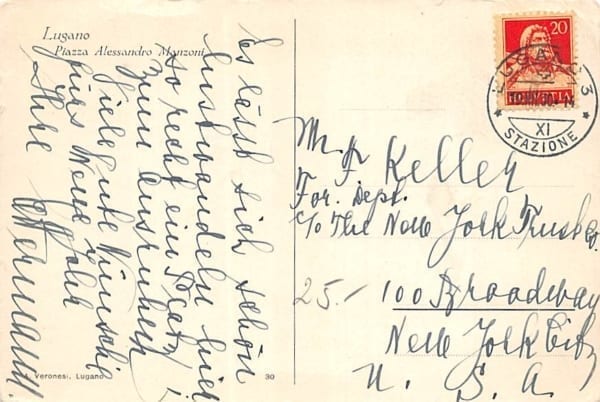 Lugano
Piazza Alessandro Manzoni
Es lässt sich schön
lustwandeln hier
so recht ein Platz
zum Ausruhen!
Viele gute Wünsche
fürs Neue Jahr
Ihre
20
LUGANO 3
XI
STAZIONE
Mr. F. Keller
For. Dept.
c/o The New York Trust Co.
25.-
100 Broadway
New York City
U. S. A.
Veronesi, Lugano
30